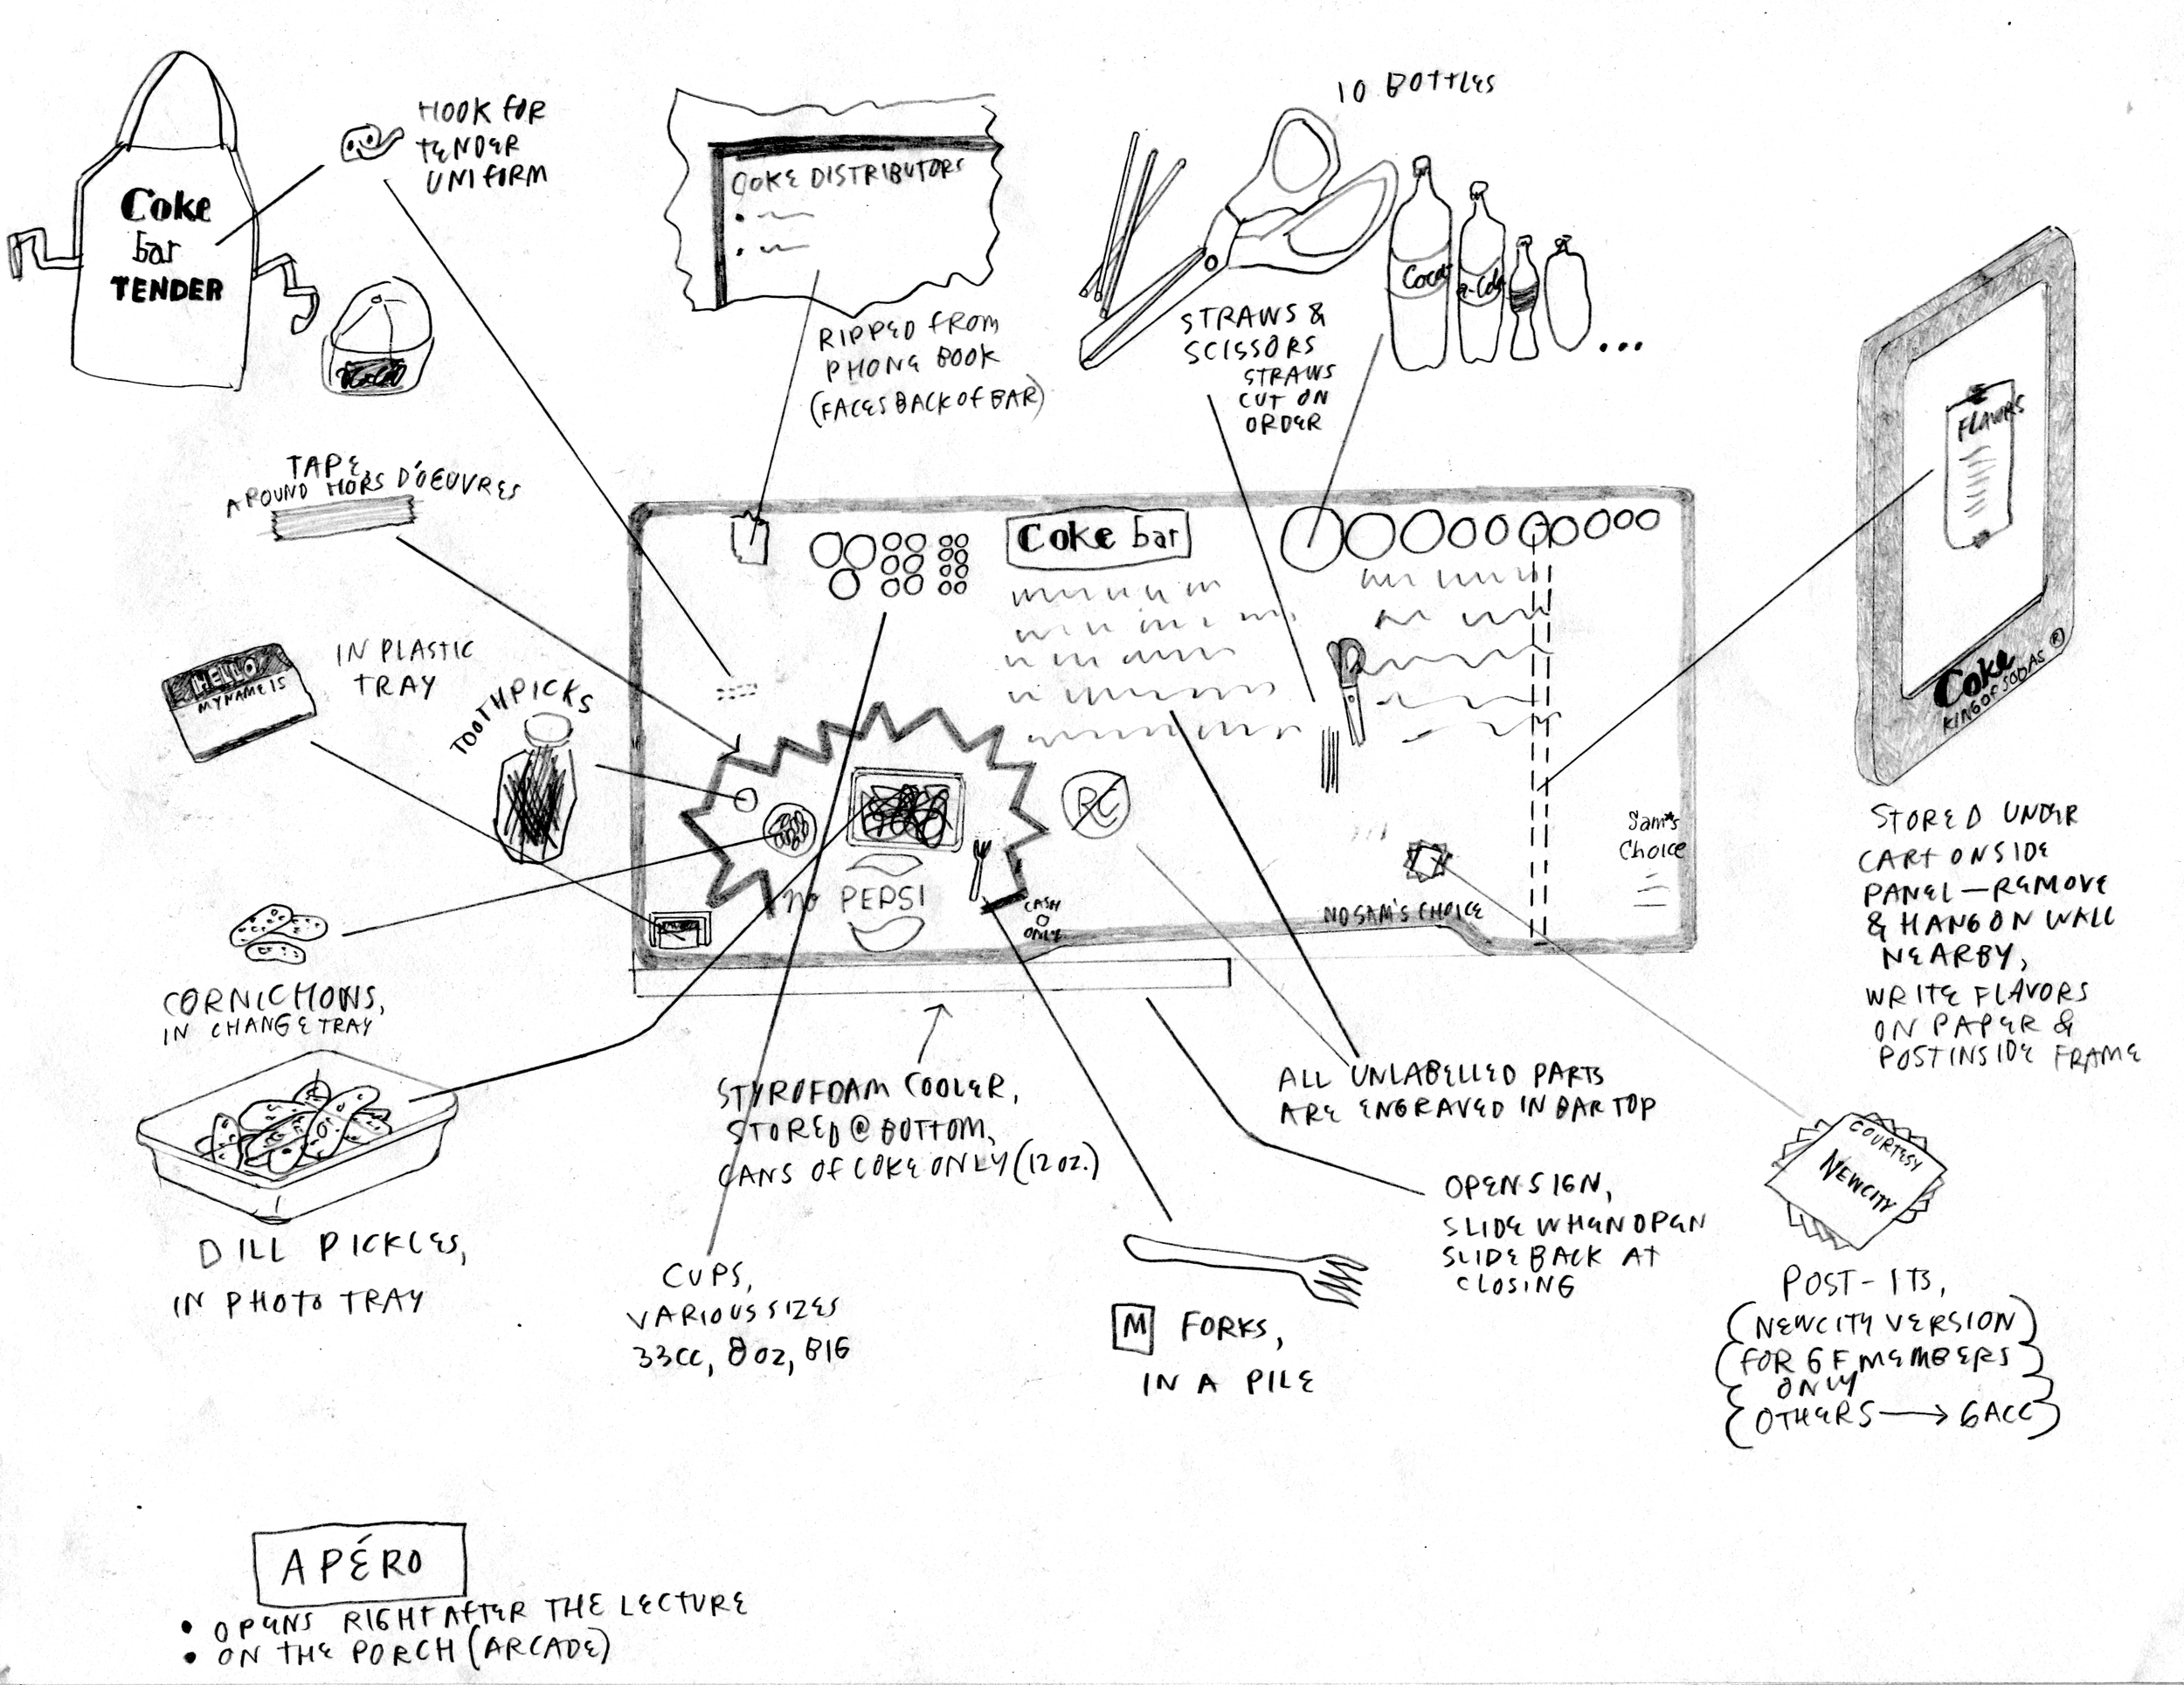 10 BOTTLES
HOOK FOR
TENDER
UNIFORM
Coke
bar
TENDER
COKE DISTRIBUTORS
RIPPED FROM
PHONE BOOK
(FACES BACK OF BAR)
STRAWS &
SCISSORS
STRAWS
CUT ON
ORDER
Coca-
a-Cola
FLAVORS
Coke
KING OF SODAS ®
TAPE,
AROUND HORS D'OEUVRES
Coke bar
HELLO
MY NAME IS
IN PLASTIC
TRAY
TOOTHPICKS
RC
NO PEPSI
CASH
ONLY
NO SAM'S CHOICE
Sam's
Choice
STORED UNDER
CART ON SIDE
PANEL — REMOVE
& HANG ON WALL
NEARBY,
WRITE FLAVORS
ON PAPER &
POST INSIDE FRAME
CORNICHONS,
IN CHANGE TRAY
STYROFOAM COOLER,
STORED @ BOTTOM,
CANS OF COKE ONLY (12 OZ.)
ALL UNLABELLED PARTS
ARE ENGRAVED IN BAR TOP
OPEN SIGN,
SLIDE WHEN OPEN
SLIDE BACK AT
CLOSING
COURTESY
NEWCITY
DILL PICKLES,
IN PHOTO TRAY
CUPS,
VARIOUS SIZES
33CC, 8 OZ, BIG
M FORKS,
IN A PILE
POST-ITS,
(NEWCITY VERSION)
(FOR GF MEMBERS
ONLY
OTHERS → GACC)
APÉRO
• OPENS RIGHT AFTER THE LECTURE
• ON THE PORCH (ARCADE)